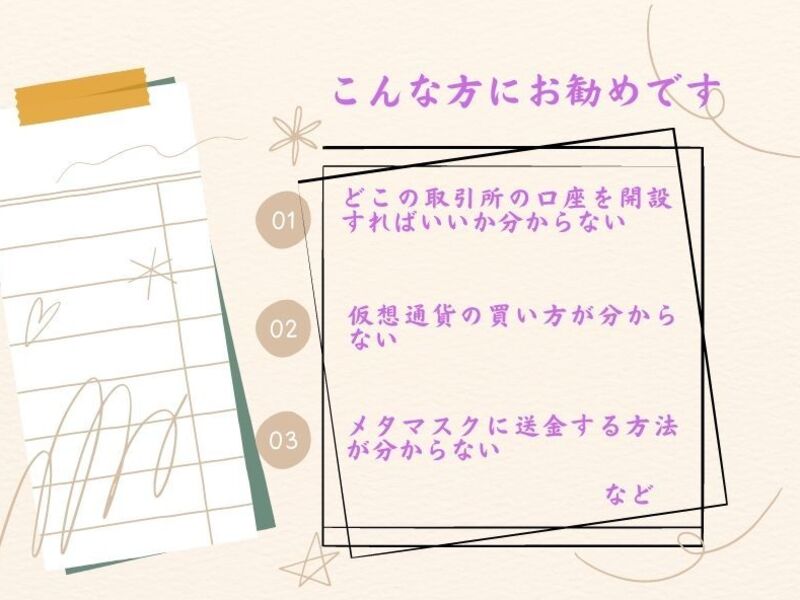 こんな方にお勧めです
01
どこの取引所の口座を開設
すればいいか分からない
02
仮想通貨の買い方が分から
ない
03
メタマスクに送金する方法
が分からない
など